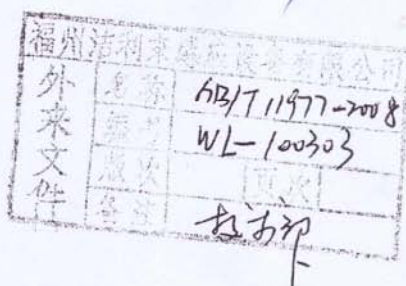 福州洁利来感应设备有限公司
外来文件
名称 GB/T 11977-2008
编号 WL-100303
版次 页次
备注 技术部